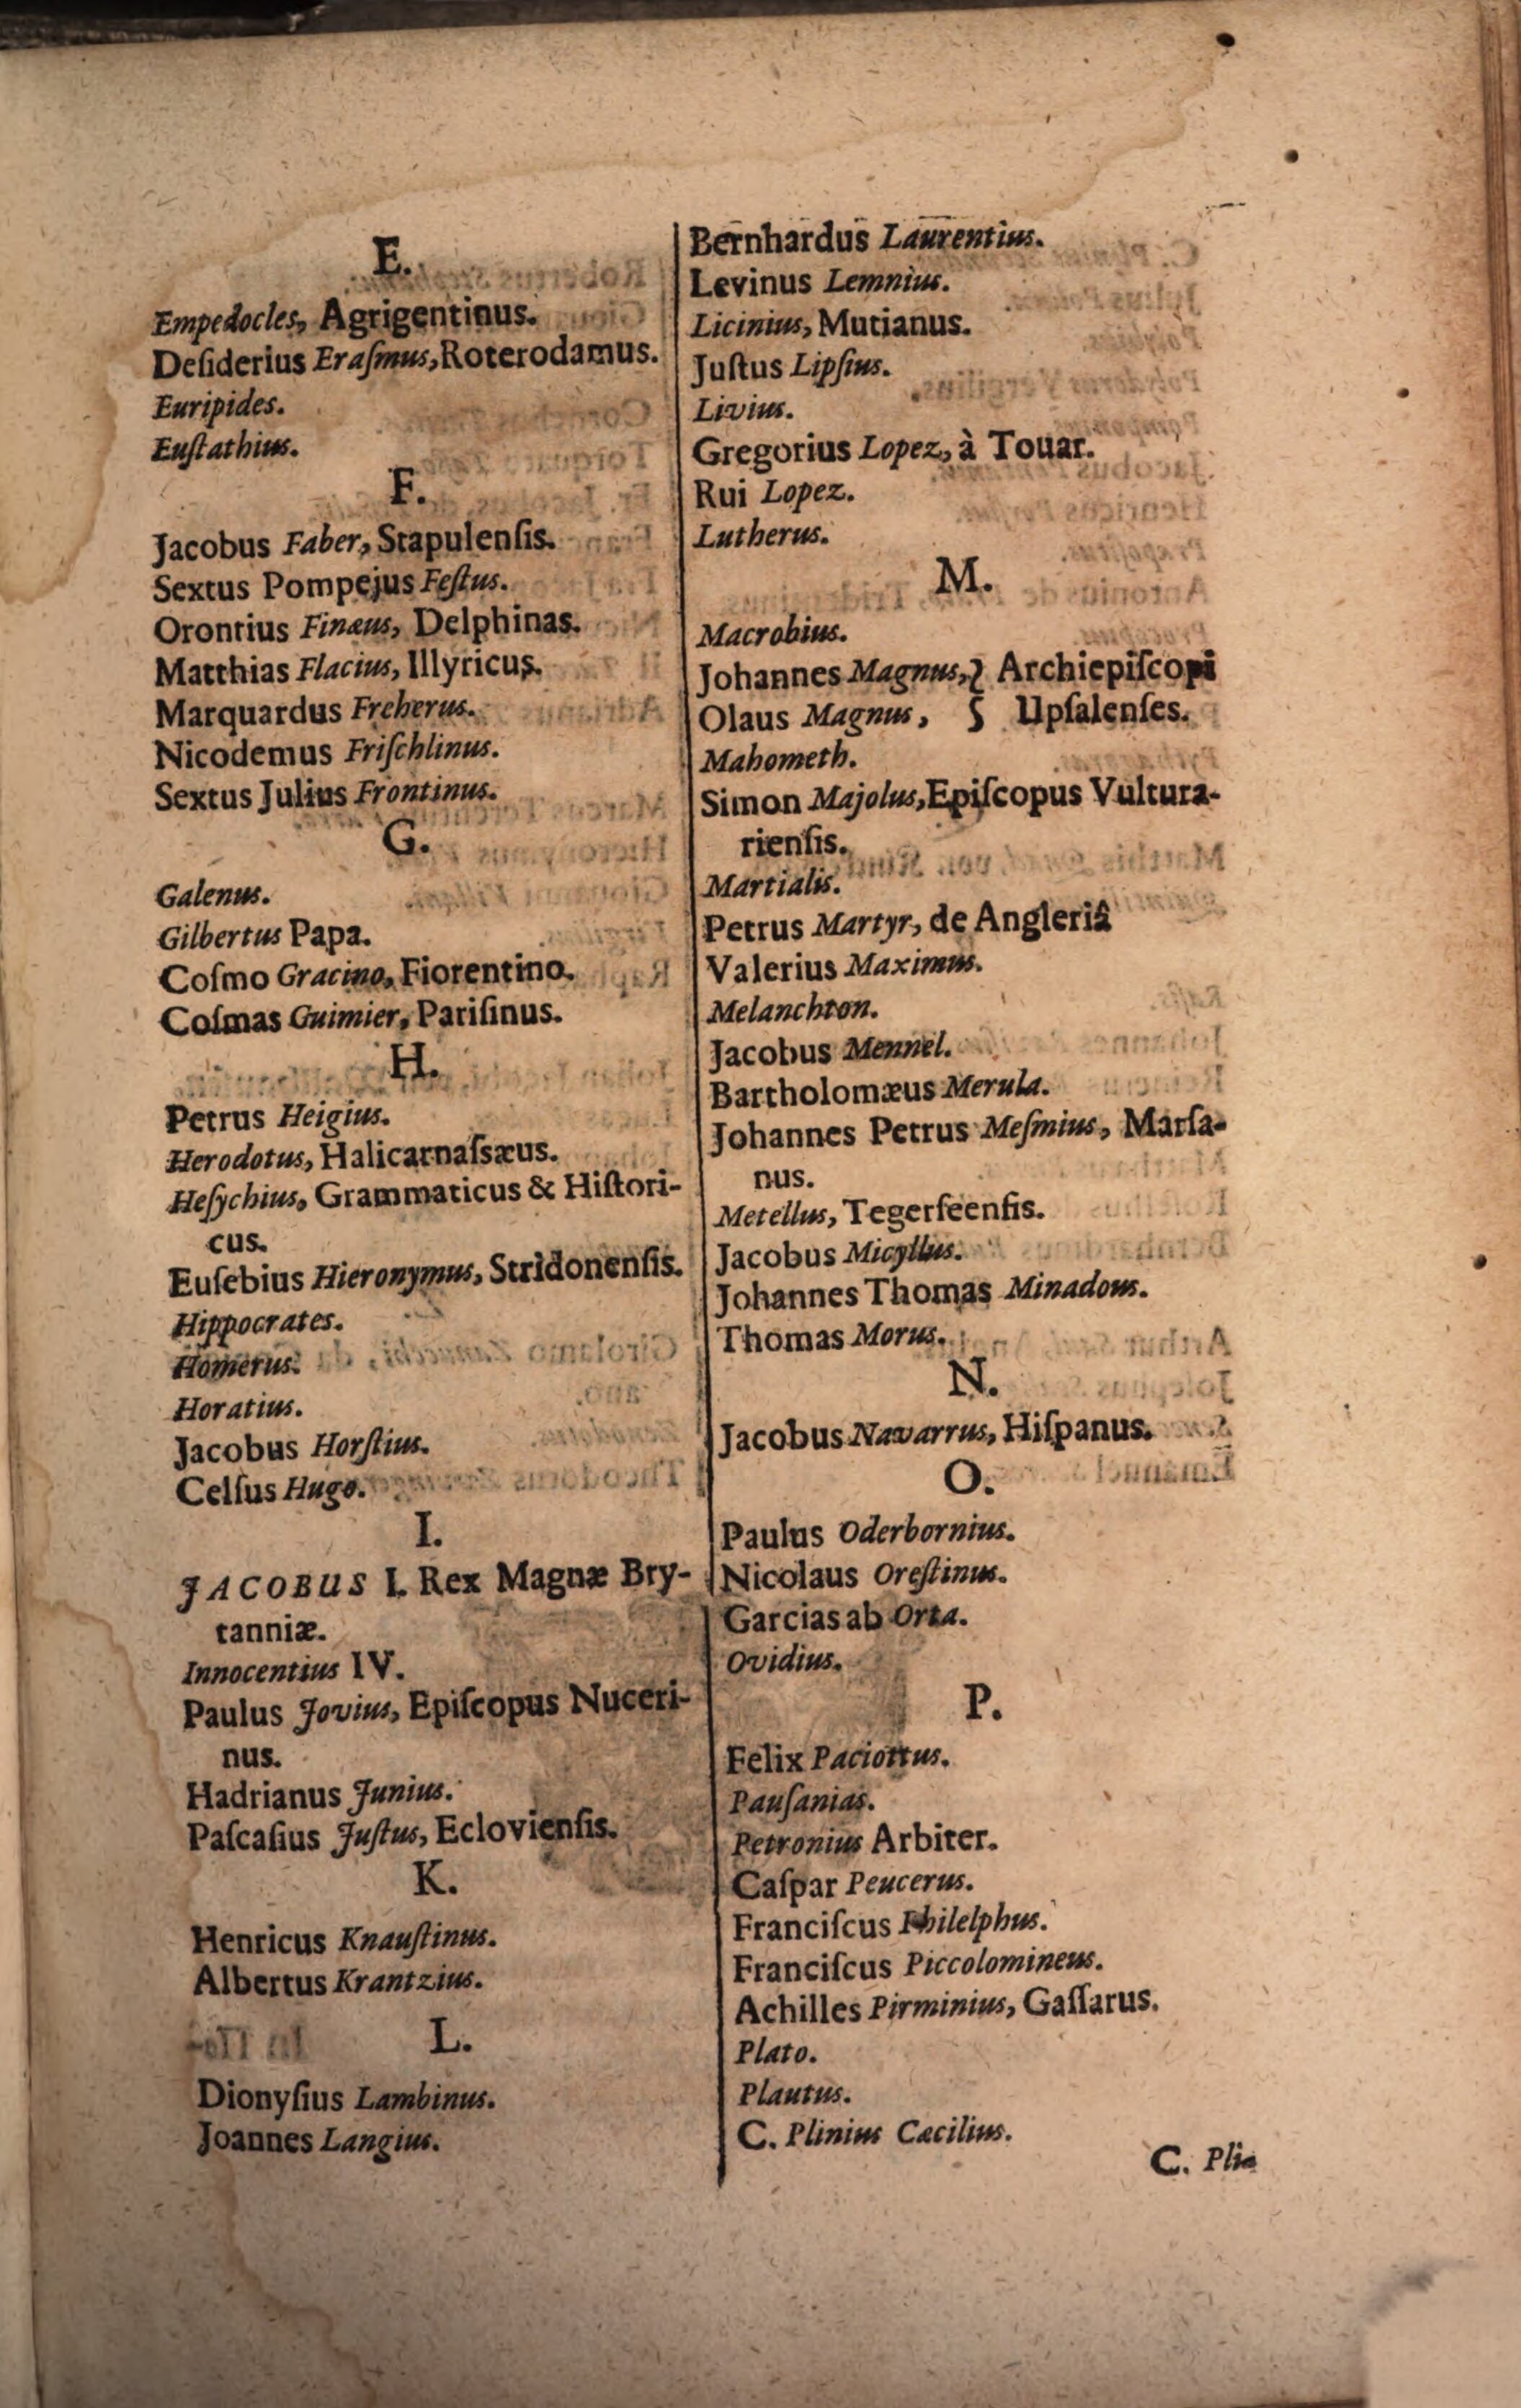 E.
Empedocles, Agrigentinus.
Deſiderius Eraſmus, Roterodamus.
Euripides.
Euſtathius.
F.
Jacobus Faber, Stapulenſis.
Sextus Pompejus Feſtus.
Orontius Finæus, Delphinas.
Matthias Flacius, Illyricus.
Marquardus Freherus.
Nicodemus Friſchlinus.
Sextus Julius Frontinus.
G.
Galenus.
Gilbertus Papa.
Coſmo Gracino, Fiorentino.
Coſmas Guimier, Pariſinus.
H.
Petrus Heigius.
Herodotus, Halicarnaſsæus.
Heſychius, Grammaticus & Hiſtori-
cus.
Euſebius Hieronymus, Stridonenſis.
Hippocrates.
Homerus.
Horatius.
Jacobus Horſtius.
Celſus Hugo.
I.
JACOBUS I. Rex Magnæ Bry-
tanniæ.
Innocentius IV.
Paulus Jovius, Epiſcopus Nuceri-
nus.
Hadrianus Junius.
Paſcaſius Juſtus, Eclovienſis.
K.
Henricus Knauſtinus.
Albertus Krantzius.
L.
Dionyſius Lambinus.
Joannes Langius.
Bernhardus Laurentius.
Levinus Lemnius.
Licinius, Mutianus.
Juſtus Lipſius.
Livius.
Gregorius Lopez, à Touar.
Rui Lopez.
Lutherus.
M.
Macrobius.
Johannes Magnus, } Archiepiſcopi
Olaus Magnus, } Upſalenſes.
Mahometh.
Simon Majolus, Epiſcopus Vultura-
rienſis.
Martialis.
Petrus Martyr, de Angleriâ
Valerius Maximus.
Melanchton.
Jacobus Mennel.
Bartholomæus Merula.
Johannes Petrus Meſmius, Marſa-
nus.
Metellus, Tegerſeenſis.
Jacobus Micyllus.
Johannes Thomas Minadous.
Thomas Morus.
N.
Jacobus Navarrus, Hiſpanus.
O.
Paulus Oderbornius.
Nicolaus Oreſtinus.
Garcias ab Orta.
Ovidius.
P.
Felix Paciottus.
Pauſanias.
Petronius Arbiter.
Caſpar Peucerus.
Franciſcus Philelphus.
Franciſcus Piccolomineus.
Achilles Pirminius, Gaſſarus.
Plato.
Plautus.
C. Plinius Cæcilius.
C. Pli-